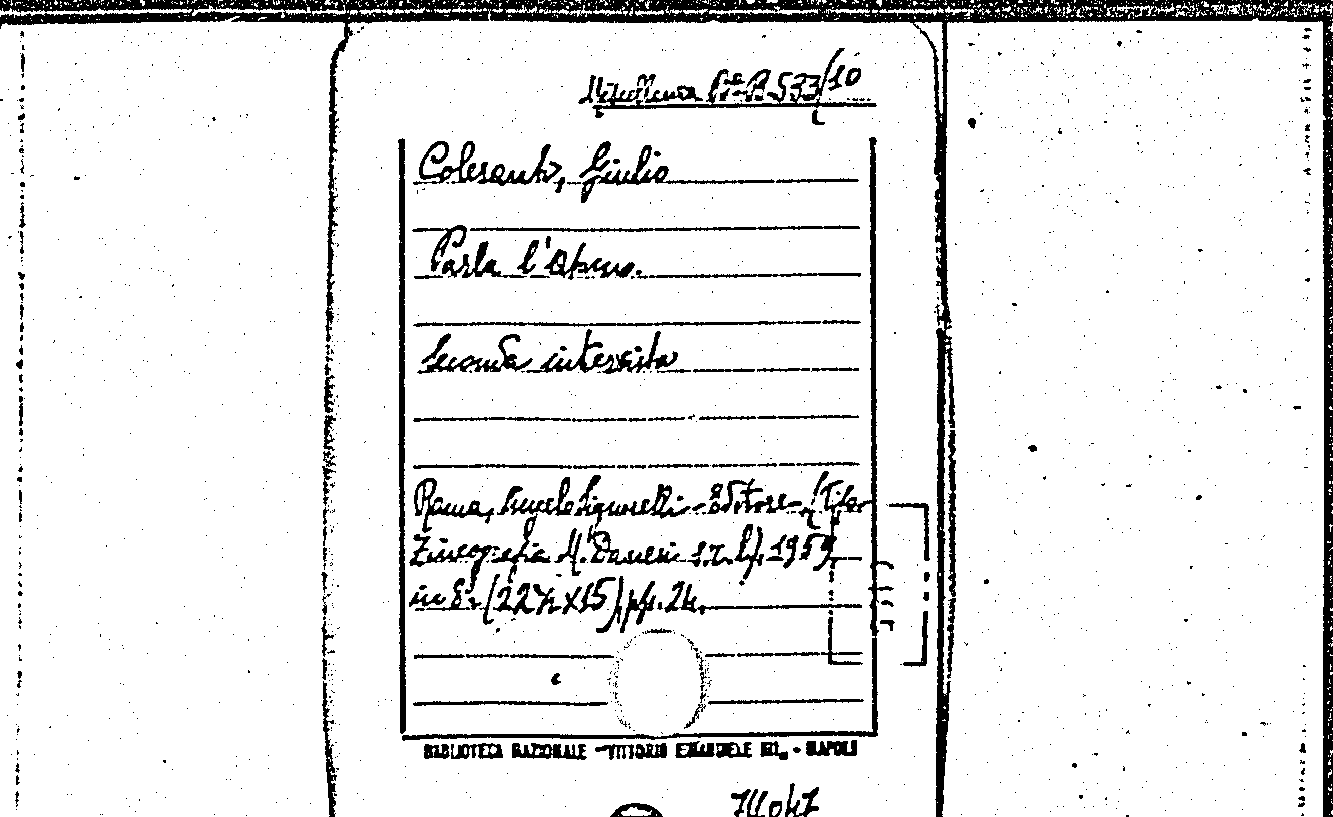 Miscellanea B.533/10
Colesanti, Giulio
Parla l'
Seconda intervista
Roma, Angelo Signorelli - Editore - (Tipo
Zincografia M. Danesi 1959
in 8º (22½ X 15), pp. 24.
BIBLIOTECA NAZIONALE "VITTORIO EMANUELE III" - NAPOLI
74047